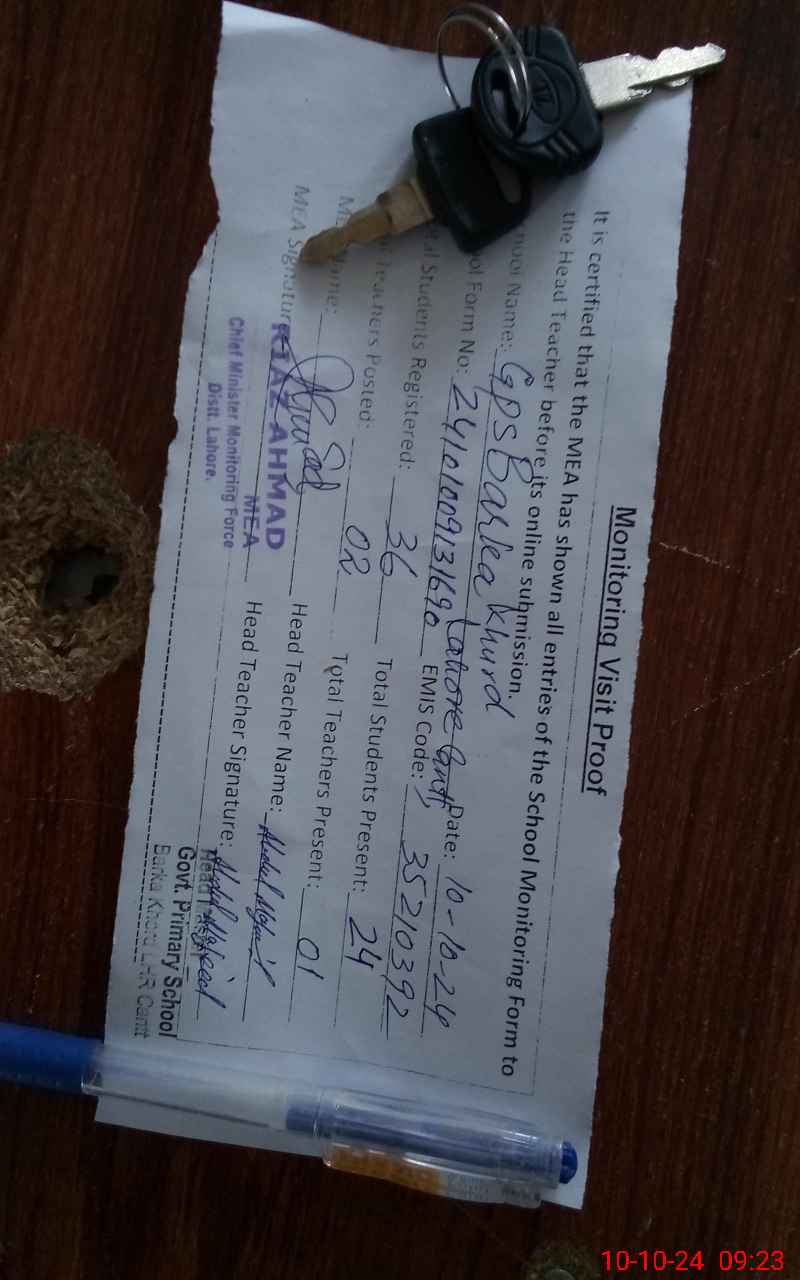 Monitoring Visit Proof
It is certified that the MEA has shown all entries of the School Monitoring Form to
the Head Teacher before its online submission.
hool Name: GPS Barka Khurd Lahore Cantt, Date: 10-10-24
ol Form No: 24101009131690 EMIS Code: 35210392
tal Students Registered: 36 Total Students Present: 24
Teachers Posted: 02 Total Teachers Present: 01
ME Name: Head Teacher Name: Abdul Majeed
MEA Signature Head Teacher Signature: Abdul Majeed
RIAZ AHMAD
MEA
Chief Minister Monitoring Force
Distt. Lahore.
Head
Govt. Primary School
Barka Khurd LHR Cantt
10-10-24 09:23